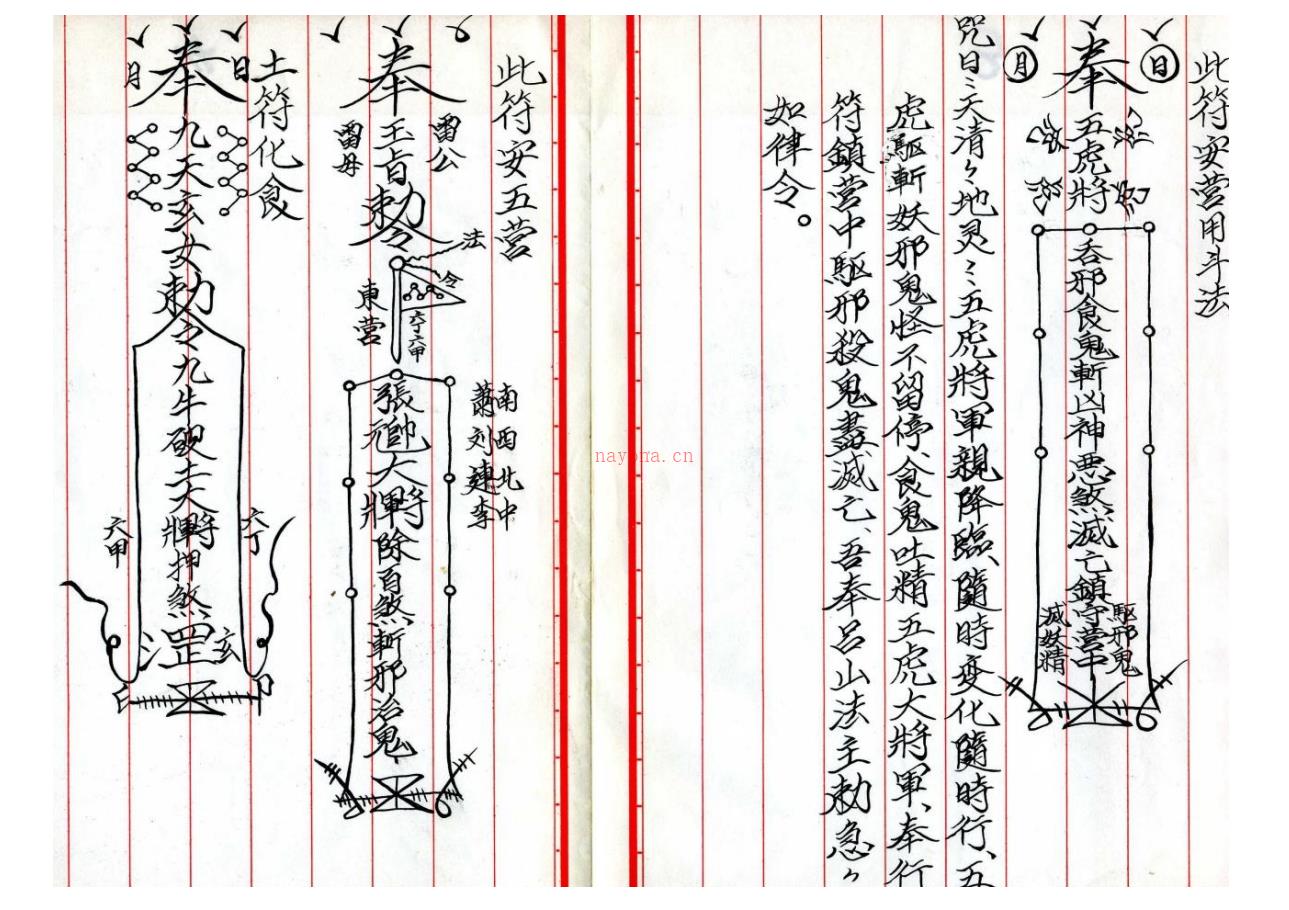 此符安营用斗法
日
奉
月
五虎將
吞邪食鬼斬凶神惡煞滅亡鎮守营中
駆邪鬼
滅妖精
咒曰：天清々地灵〻五虎將軍親降臨、隨時变化隨時行、五
虎駆斬妖邪鬼怪不留停、食鬼吐精五虎大將軍、奉行
符鎮营中駆邪殺鬼盡滅亡、吾奉呂山法主勅急々
如律令。
此符安五营
奉
雷公
玉旨勅令
雷母
法
令
東营
六甲
南西北中
蕭刘連李
張元帥大將軍除百煞斬邪治鬼
土符化食
日
奉
月
九天玄女勅令九牛破土大將軍押煞罡
六丁
六甲
nayona.cn